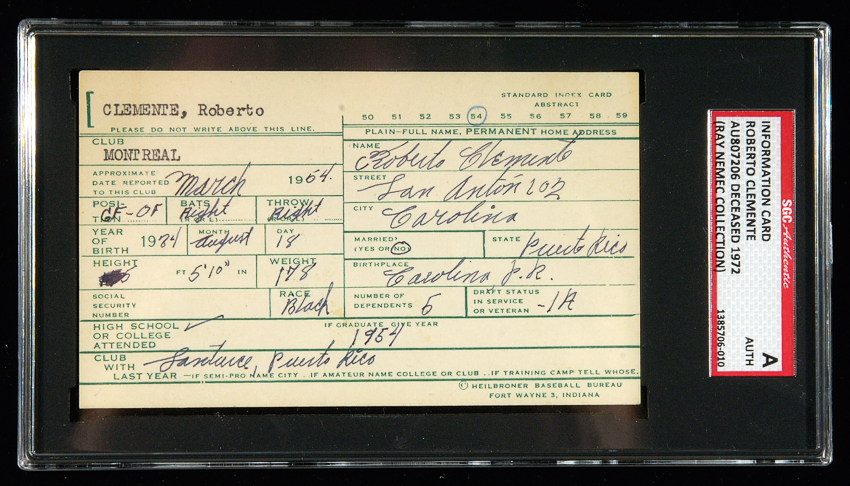 STANDARD INDEX CARD
ABSTRACT
CLEMENTE, Roberto
50 51 52 53 54 55 56 57 58 59
PLEASE DO NOT WRITE ABOVE THIS LINE.
PLAIN-FULL NAME, PERMANENT HOME ADDRESS
CLUB
MONTREAL
NAME
Roberto Clemente
APPROXIMATE
DATE REPORTED
TO THIS CLUB
March 1954.
STREET
San Antón 202
POSI-
TION
CF-OF
BATS
Right
THROW
Right
CITY
Carolina
YEAR
OF
BIRTH
1934
MONTH
August
DAY
18
MARRIED?
(YES OR NO)
STATE
Puerto Rico
HEIGHT
FT 5'10" IN
WEIGHT
178
BIRTHPLACE
Carolina P.R.
SOCIAL
SECURITY
NUMBER
RACE
Black
NUMBER OF
DEPENDENTS
5
DRAFT STATUS
IN SERVICE
OR VETERAN
-1A
HIGH SCHOOL
OR COLLEGE
ATTENDED
IF GRADUATE GIVE YEAR
1954
CLUB
WITH
LAST YEAR
Santurce, Puerto Rico
—IF SEMI-PRO NAME CITY . IF AMATEUR NAME COLLEGE OR CLUB . . IF TRAINING CAMP TELL WHOSE.
© HEILBRONER BASEBALL BUREAU
FORT WAYNE 3, INDIANA
SGC Authentic
INFORMATION CARD
ROBERTO CLEMENTE
AU807206 DECEASED 1972
(RAY NEMEC COLLECTION)
1385706-010
A
AUTH